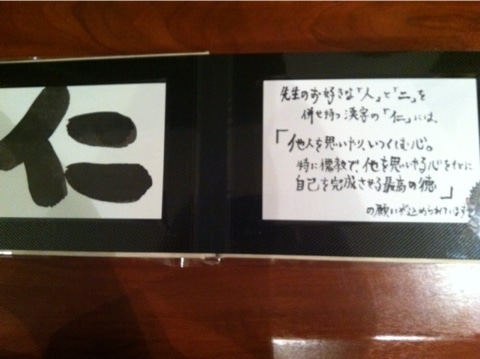 仁
先生のお好きな「人」と「二」を
併せ持つ漢字の「仁」には、
「他人を思いやり、いつくしむ心。
特に儒教で、他を思いやる心をもとに
自己を完成させる最高の徳」
の願いが込められています